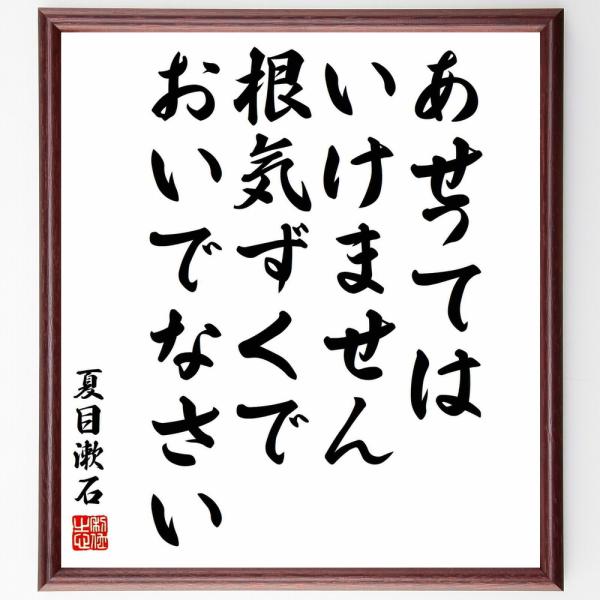 あせっては
いけません
根気ずくで
おいでなさい
夏目漱石